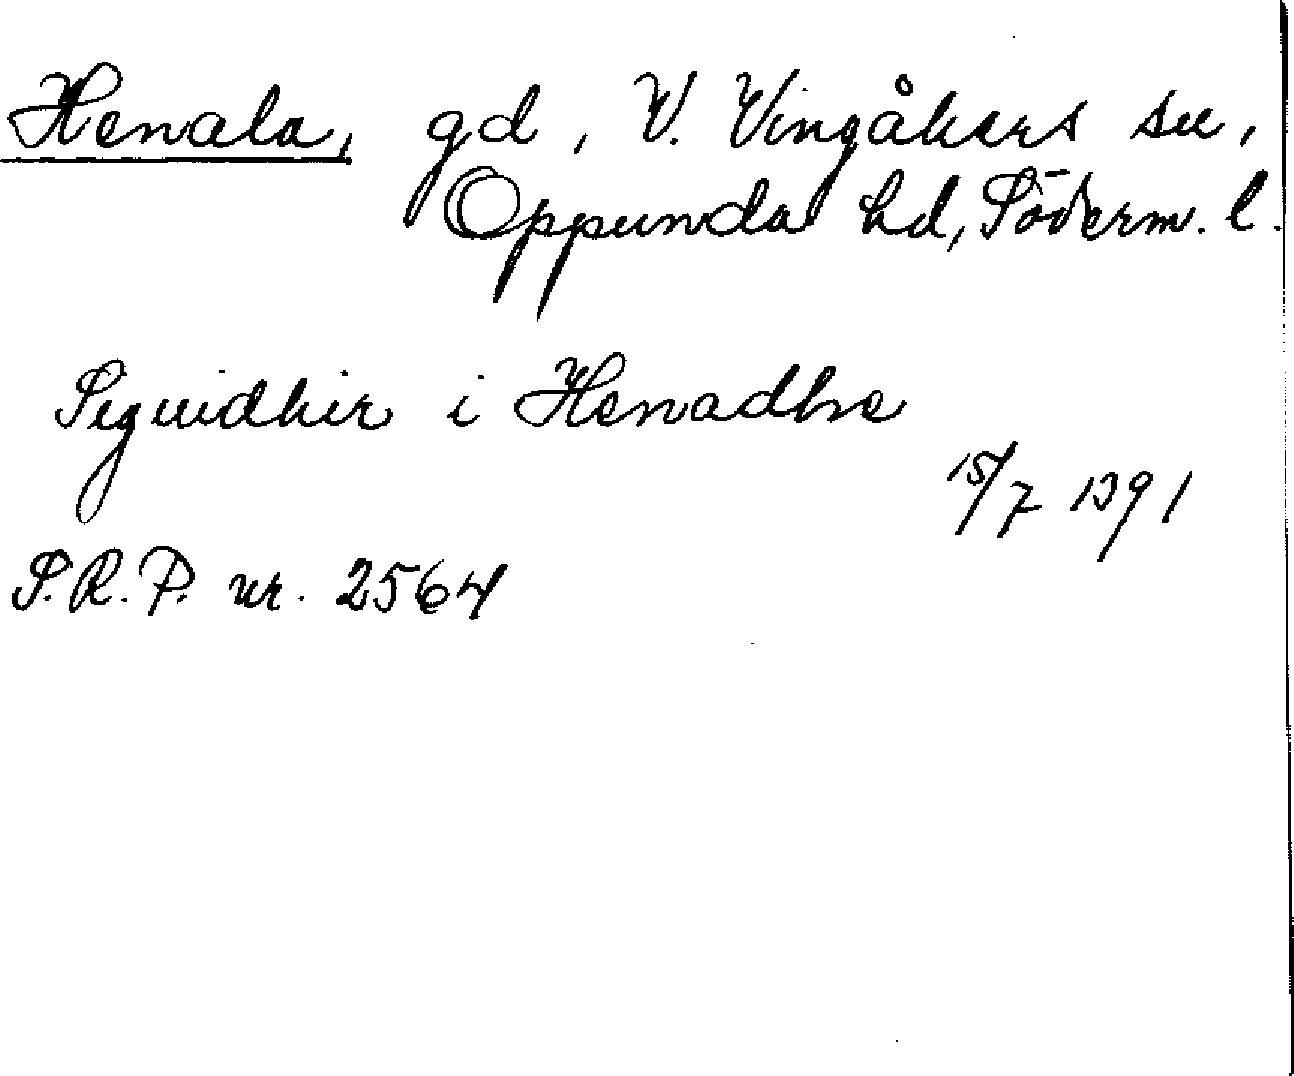 Henala, gd, V. Vingåkers sn,
Oppunda hd, Söderm. l.
Sigwidhir i Henadhe
15/7 1391
S.R.P. nr. 2564